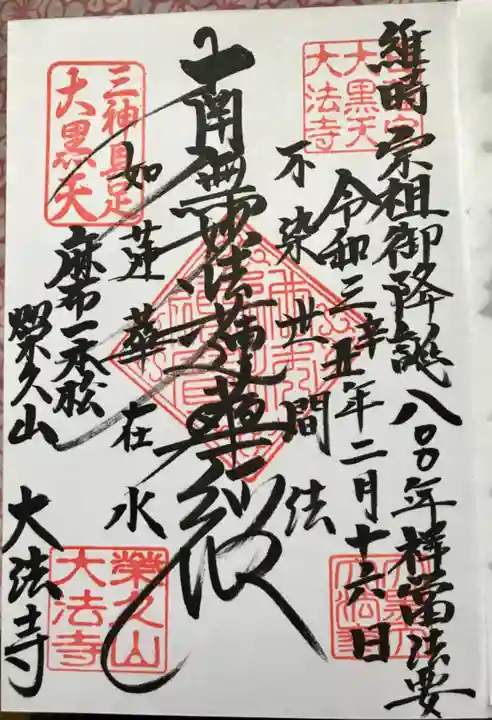 維時 宗祖御降誕八〇〇年祥當法要
令和三辛丑年二月十六日
不染世間法
南無妙法蓮華経
如蓮華在水
麻布一本松
榮久山 大法寺
大黒天
大法寺
三神具足
大黒天
榮久山
大法寺